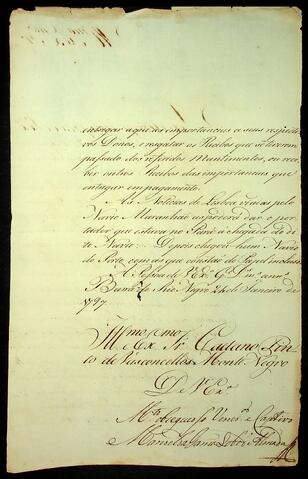 entregar aqui as importancias a seus respecti-
vos Donos, e resgatar os Recibos que se tiverem
passado dos referidos Mantimentos, ou rece-
ber outros Recibos das importancias que
entregar em pagamento.
As Noticias de Lisboa vindas pelo
Navio Maranhão as poderá dar o por-
tador que estava no Pará à chegada do di-
to Navio: Depois chegou hum Navio
do Porto, com as que constão do Papel incluso.
A Pessoa de V. Ex.ª G.e D.s m.s ann.s
Barra do Rio Negro 24 de Janeiro de
1797
Ill.mo e Ex.mo Sr. Caetano Pin-
to de Vasconcellos Monte Negro
De V. Ex.ª
M.to obsequioso Vener.or e Captivo
Manoel da Gama Lobo de Almada